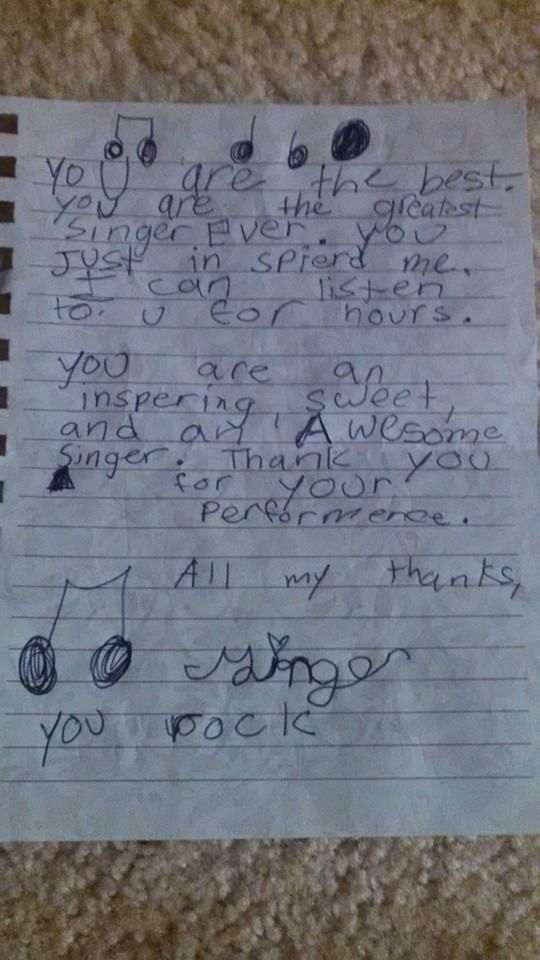 you are the best.
you are the greatest
singer Ever. you
just in spierd me.
I can listen
to. u for hours.
you are an
inspering sweet,
and an Awesome
singer. Thank you
for your
performence.
All my thanks,
Ginger
you rock